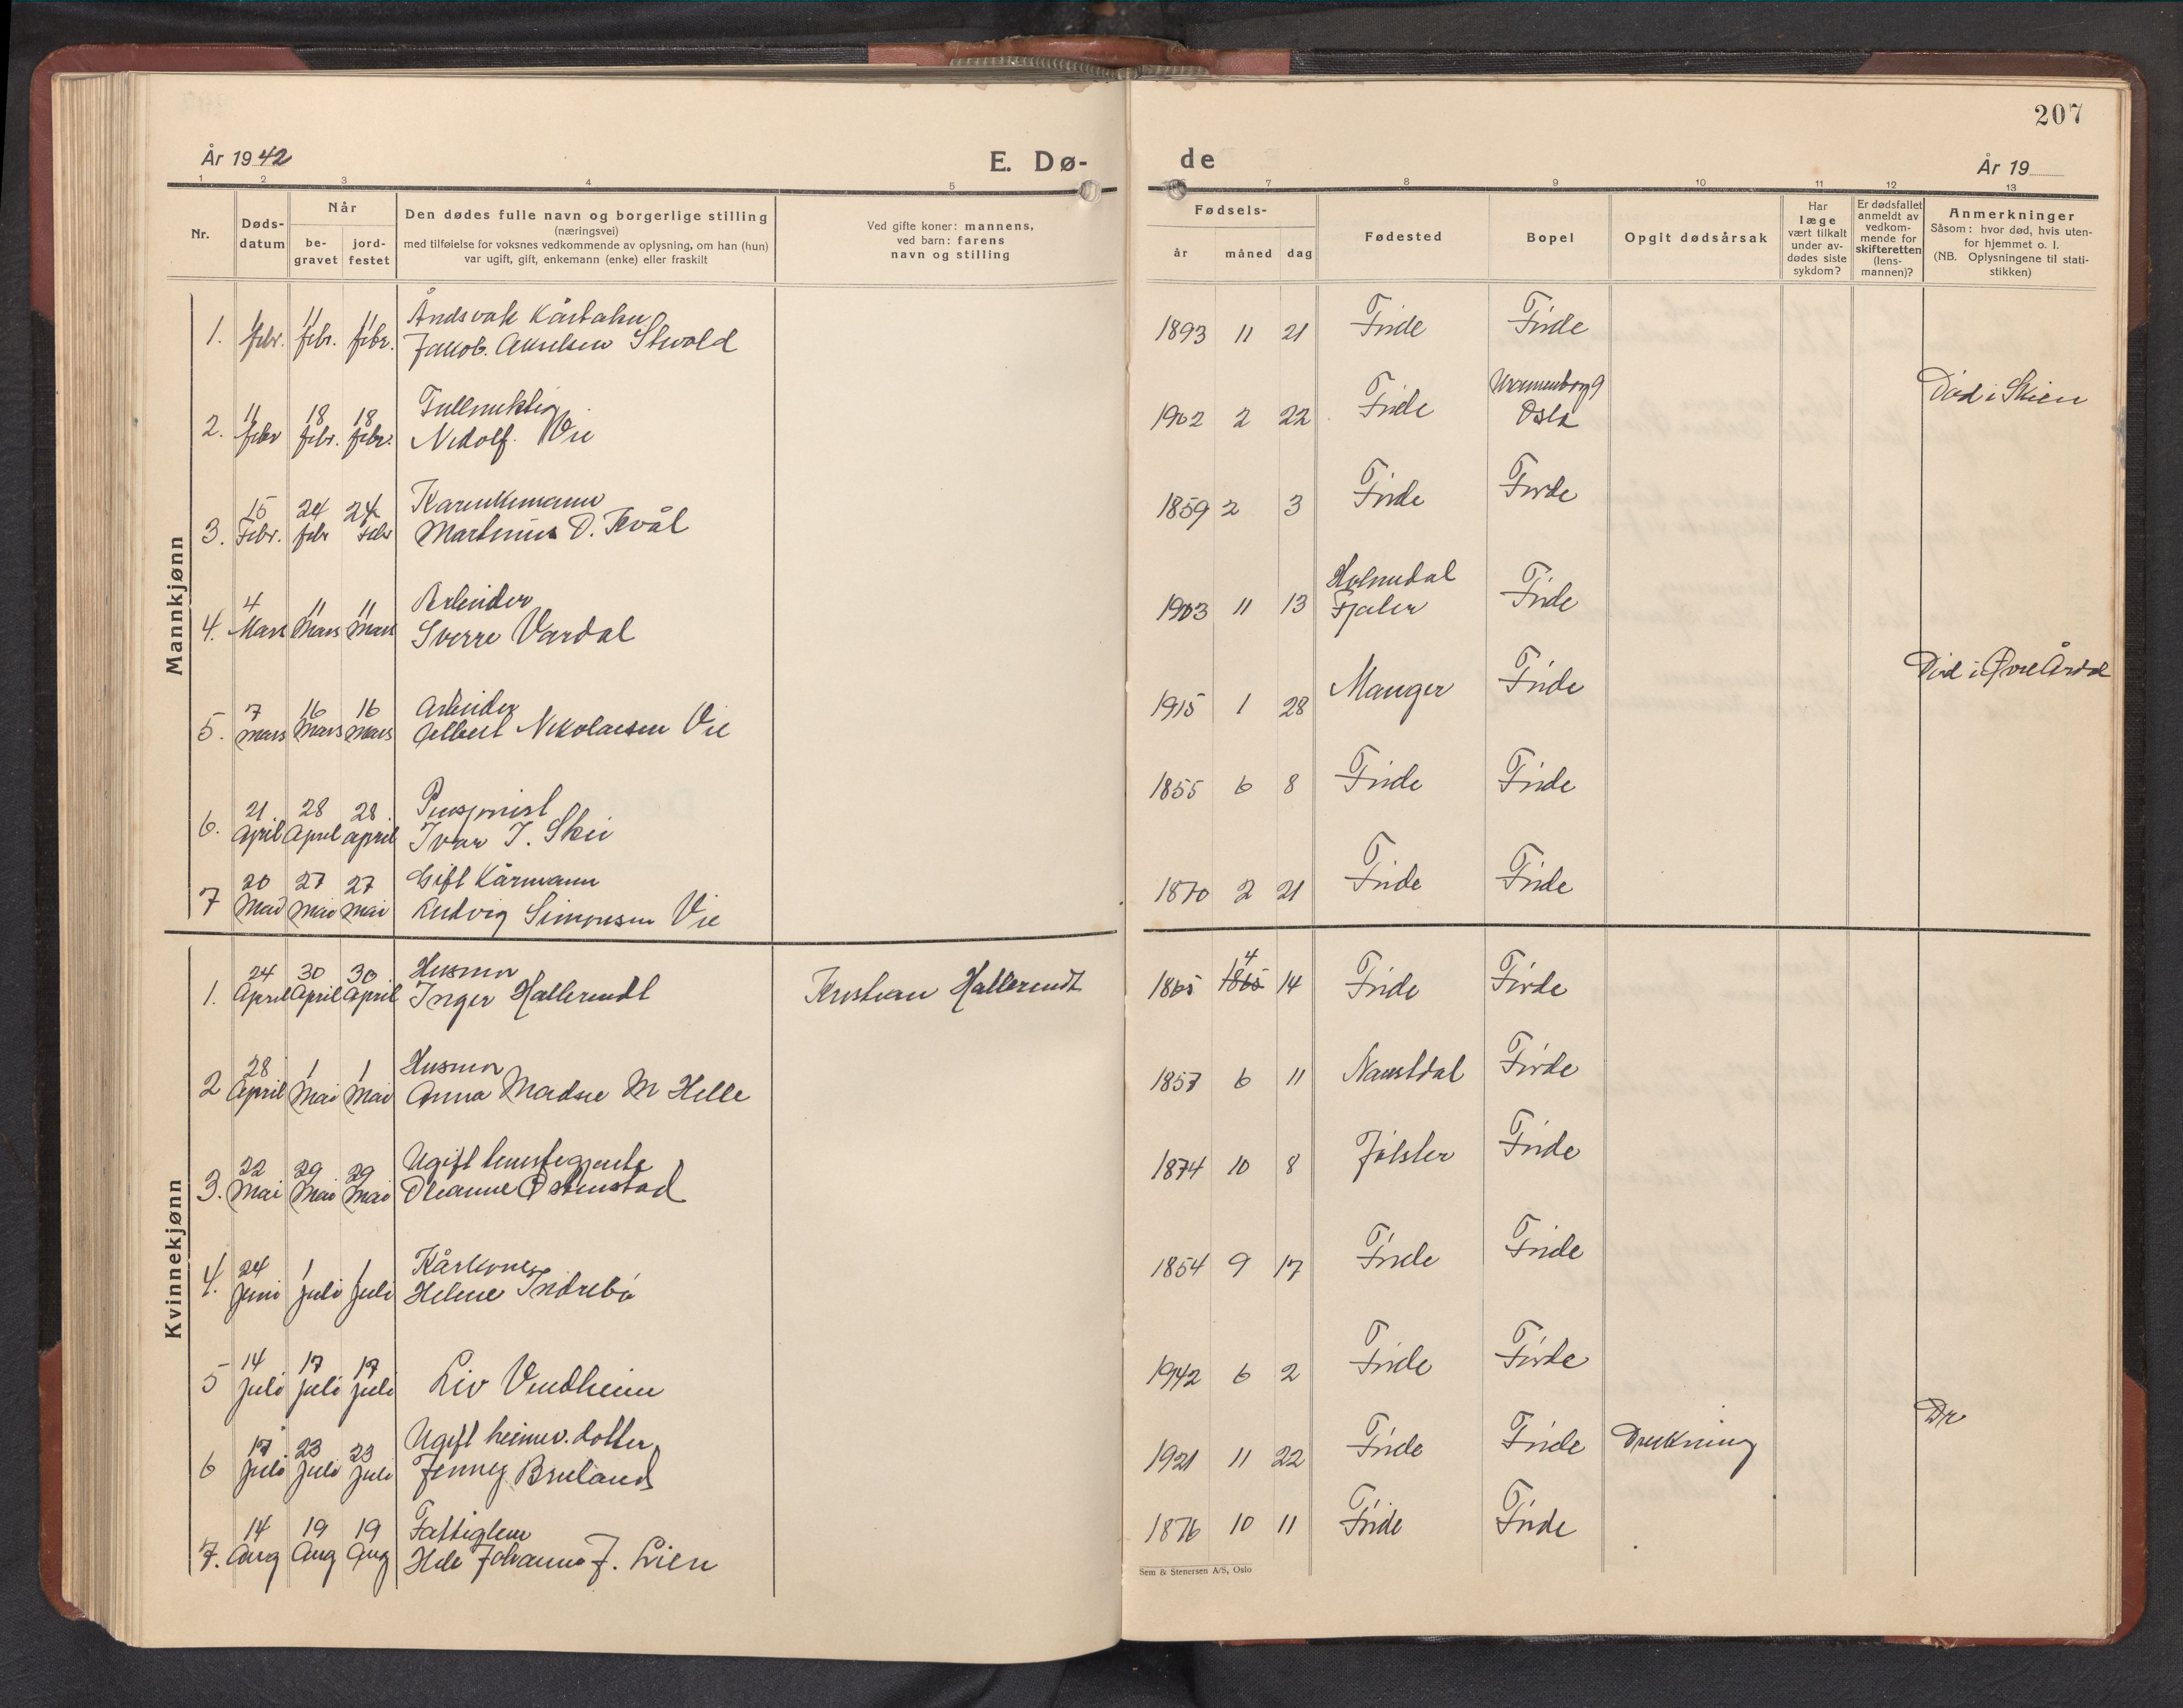 207
År 1942
E. Dø-
de
År 19
1 2 3 4 5
6 7 8 9 10 11 12 13
Nr.
Døds-
datum
Når
be-
gravet
jord-
festet
Den dødes fulle navn og borgerlige stilling
(næringsvei)
med tilføielse for voksnes vedkommende av oplysning, om han (hun)
var ugift, gift, enkemann (enke) eller fraskilt
Ved gifte koner: mannens,
ved barn: farens
navn og stilling
Fødsels-
år måned dag
Fødested
Bopel
Opgit dødsårsak
Har
læge
vært tilkalt
under av-
dødes siste
sykdom?
Er dødsfallet
anmeldt av
vedkom-
mende for
skifteretten
(lens-
mannen)?
Anmerkninger
Såsom: hvor død, hvis uten-
for hjemmet o. l.
(NB. Oplysningene til stati-
stikken)
Mannkjønn
11 11
1. febr. febr. febr. Jakob. Akselsen
1893 11 21 Førde Førde
11 18 18 Fullmektig
2. febr febr. febr. Nidolf. Vie
1902 2 22 Førde Oslo
Død i Skien
15 24 24
3. Febr. febr Febr Martinus D. Kvål
1859 2 3 Førde Førde
4 11 11 Arbeider
4. Mars Mars Mars Sverre Vardal
1903 11 13 Holmedal Fjaler Førde
7 16 16 Arbeider
5. mars Mars mars Albert Nikolaisen Vie
1915 1 28 Manger Førde
Død i Øvre Årdal
21. 28 28. Pensjonist
6. April April april Ivar J. Skei
1855 6 8 Førde Førde
20 27 27 Gift Kårmann
7 Mai mai mai Ludvig Simonsen Vie
1870 2 21 Førde Førde
Kvinnekjønn
24 30 30 Husmor
1. April April April Inger Hallerundt
Kristian Hallerundt
1865 1865 4 14 Førde Førde
28 1 1 Husmor
2 April Mai Mai Anna Madsie M Helle
1857 6 11 Naustdal Førde
22 29 29 Ugift
3. Mai Mai Mai Oleanne Østenstad
1874 10 8 Jølster Førde
24 1 1 Kårkone
4. Juni Juli Juli Helene Indrebø
1854 9 17 Førde Førde
14 17 17
5 Juli Juli Juli Liv
1942 6 2 Førde Førde
17 23 23 Ugift heimev. dotter
6 Juli Juli Juli Jenney Bruland
1921 11 22 Førde Førde Drukning
Dr
14 19 19 Fattiglem
7. Aug Aug Aug Johanne J. Lien
1876 10 11 Førde Førde
Sem & Stenersen A/S, Oslo